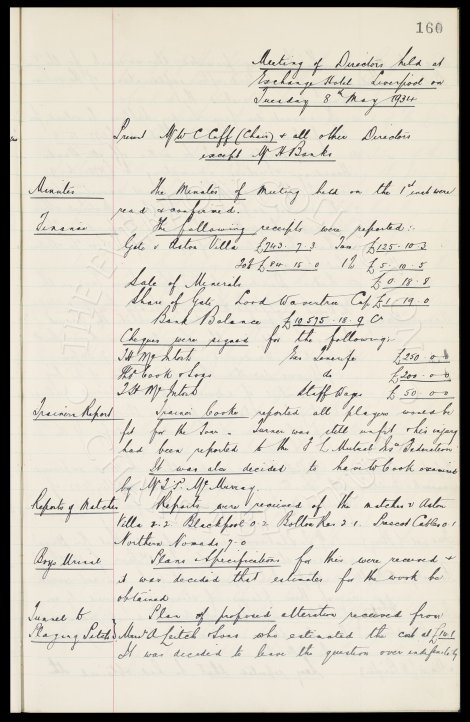 160
Meeting of Directors held at
Exchange Hotel Liverpool on
Tuesday 8th May 1934
Present Mr W C Cuff (Chair) & all other Directors
except Mr H Banks
Minutes The Minutes of Meeting held on the 1st inst were
read & confirmed.
Finance The following receipts were reported:-
Gate v Aston Villa £743.7.3 Tax £135.10.3
£84.15.0 £5.10.5
Sale of Minerals £0.18.8
Share of Gate, Lord Wavertree Cup £1.19.0
Bank Balance £10,575.18.9 Cr
Cheques were signed for the following:-
T H McIntosh Tour Tenerife £250.0.0
Thos Cook & Sons do £200.0.0
T. H. McIntosh Staff Wages £50.0.0
Trainers Report Trainer Cooke reported all players would be
fit for the Tour - Turner was still unfit & his injury
had been reported to the F L Mutual Ins Federation
It was also decided to have to Cook examined
by Mr McMurray.
Reports of Matches Reports were received of the matches v Aston
Villa 2.2. Blackpool 0.2 Bolton Res 2.1. Prescot Cables 0.1
Northern Nomads 7.0
Boys Urinal Plans & Specifications for this were received &
it was decided that estimates for the work be
obtained
Tunnel to Plan of proposed alteration received from
Playing Pitch Messrs A Leitch & Sons who estimated the cost at
It was decided to leave the question over indefinitely